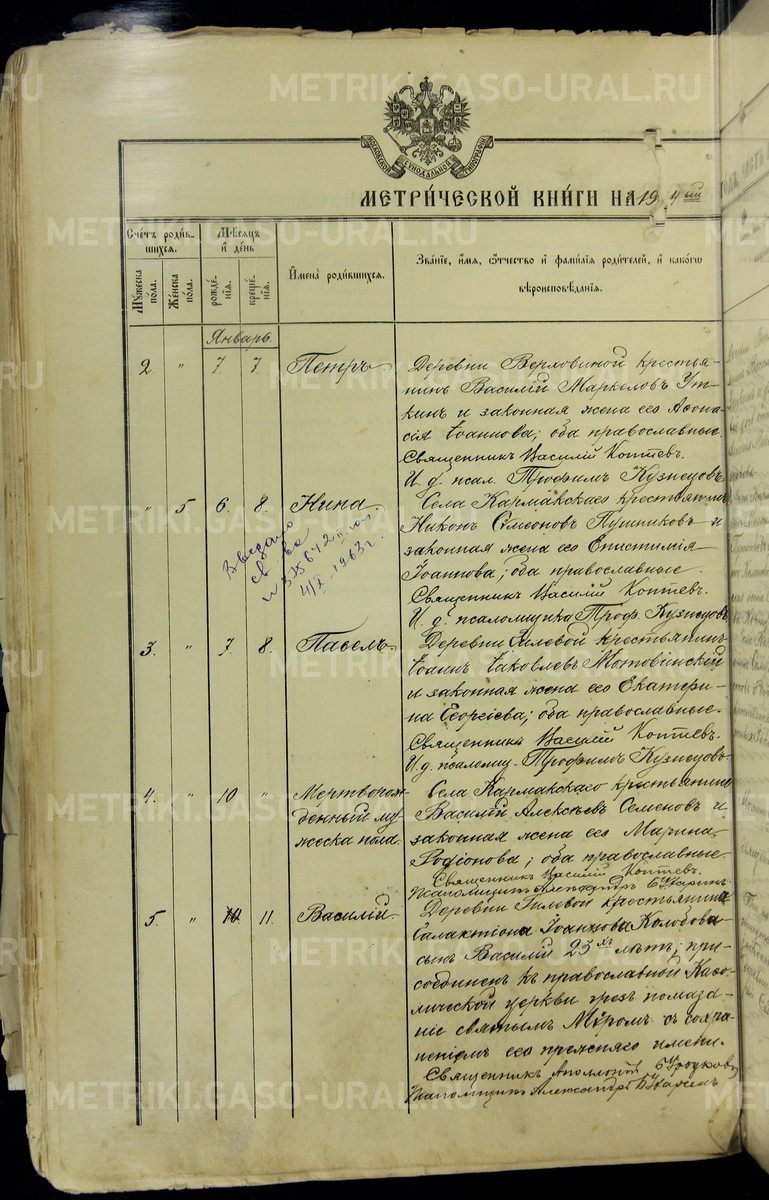 МОСКОВСКОЙ СѴНОДАЛЬНОЙ ТИПОГРАФІИ
МЕТРИ́ЧЕСКОЙ КНИ́ГИ НА 1904ый
Сче́тъ роди́в-
шихся.
Мѣ́сяцъ
и҆ де́нь
Мꙋ́жеска
по́ла.
Же́нска
по́ла.
рожде́-
нїѧ.
креще́-
нїѧ.
И҆мена̀ роди́вшихся.
Зва́нїе, и҆́мѧ, ѻ҆́тчество и҆ фами́лїѧ роди́телей, и҆ какѡ́гѡ
вѣроисповѣ́данїѧ.
Январь
2. " 7 7. Петръ
Деревни крестья-
нинъ Василій Маркеловъ Ут-
кинъ и законная жена его Афона-
сія Іоаннова; оба православные.
Священникъ Василій Коптевъ.
И. д. псал. Трофимъ Кузнецовъ
" 5 6. 8. Нина
Села Кармакскаго крестьянинъ
Никонъ Симеоновъ Пушниковъ и
законная жена его Епистимія
Іоаннова; оба православные.
Священникъ Василій Коптевъ.
И. д. псаломщика Троф. Кузнецовъ
Выдано
св-во
1963 г.
3. " 7. 8. Павелъ
Деревни Гилевой крестьянинъ
Іоаннъ Іаковлевъ
и законная жена его Екатери-
на Георгіева; оба православные.
Священникъ Василій Коптевъ.
И. д. псаломщ. Трофимъ Кузнецовъ
4. " 10 " Мертворож-
денный му-
жеска пола.
Села Кармакскаго крестьянинъ
Василій Алексѣевъ Семеновъ и
законная жена его Марина
Родіонова; оба православные.
Священникъ Василій Коптевъ.
Псаломщикъ Александръ
5. " 10 11. Василій
Деревни Гилевой крестьянина
Галактіона Іоаннова Колобова
сынъ Василій 23хъ лѣтъ; при-
соединенъ къ православной Каѳо-
лической церкви чрезъ помаза-
ніе святымъ Мѵромъ съ сохра-
неніемъ его прежняго имени.
Священникъ
Псаломщикъ Александръ
METRIKI.GASO-URAL.RU